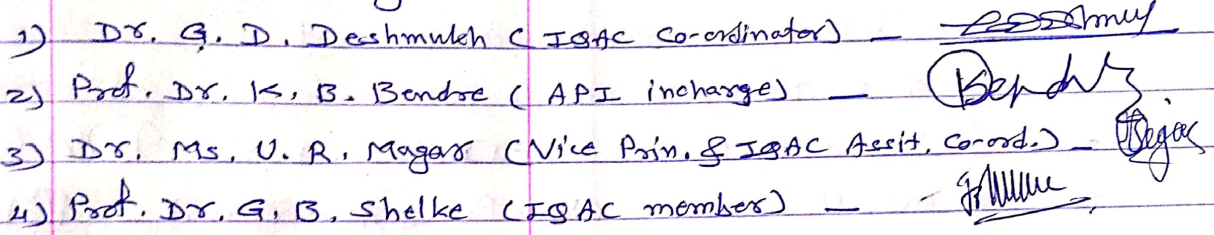 1) Dr. G. D. Deshmukh ( IQAC Co-ordinator) –
2) Prof. Dr. K. B. Bendre ( API incharge) – Bendre
3) Dr. Ms. U. R. Magar (Vice Prin. & IQAC Assit. Co-ord.) –
4) Prof. Dr. G. B. Shelke (IQAC member) –